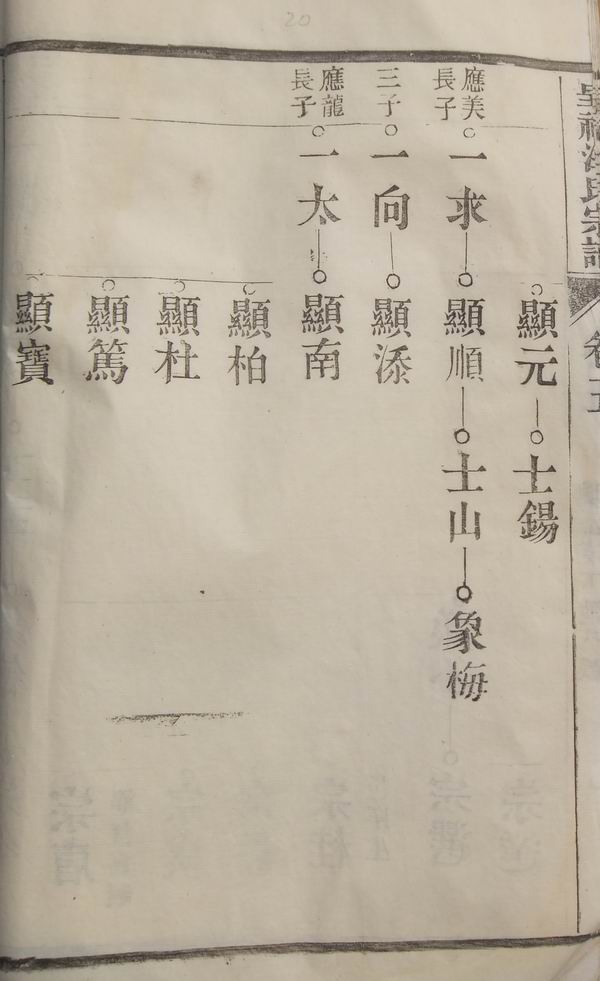 20
氏宗譜
卷
顯元 士錫
應美
長子
一求 顯順 士山 象梅
三子
一向 顯添
應龍
長子
一太 顯南
顯柏
顯杜
顯篤
顯寶